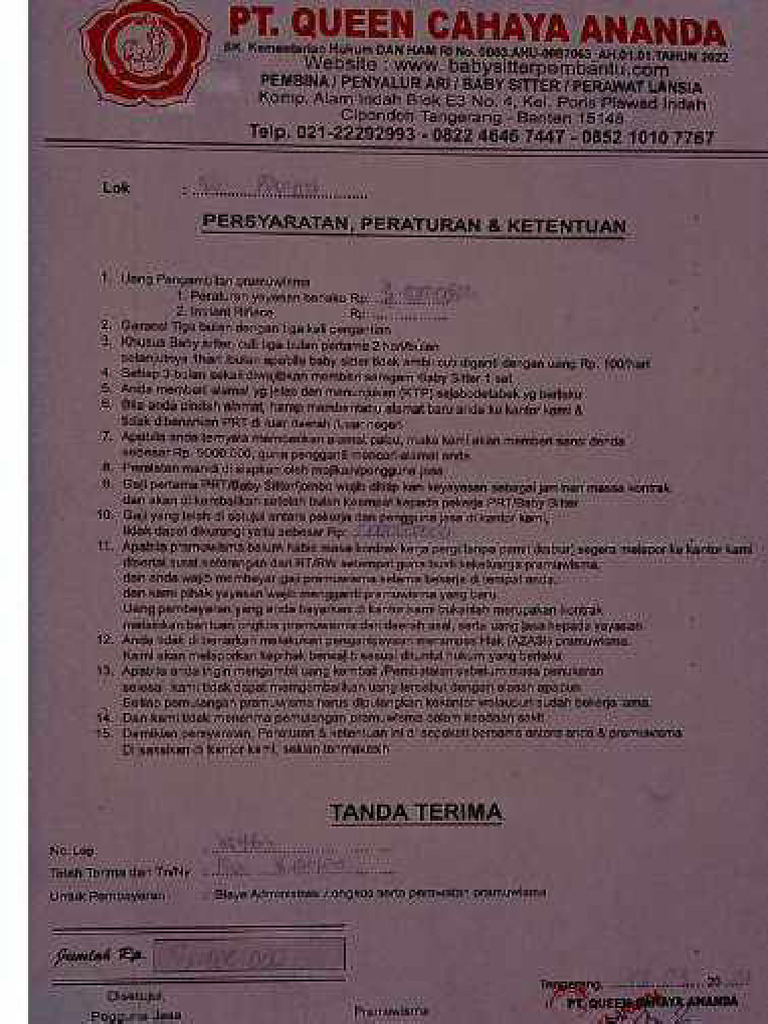 PT. QUEEN CAHAYA ANANDA
SK. Kementerian Hukum DAN HAM RI No. TAHUN 2022
Website : www. babysitterpembantu.com
PEMBINA / PENYALUR ART / BABY SITTER / PERAWAT LANSIA
Komp. Alam Indah Blok E3 No. 4, Kel. Poris Plawad Indah
Cipondoh Tangerang - Banten 15148
Telp. 021-22292993 - 0822 4646 7447 - 0852 1010 7767
Lok :
PERSYARATAN, PERATURAN & KETENTUAN
1. Uang Pengambilan pramuwisma
1. Peraturan yayasan berlaku Rp:
2. Rp:
2. Garansi Tiga bulan dengan tiga kali pergantian
3. Khusus Baby sitter, cuti tiga bulan pertama 2 hari/bulan
selanjutnya 1hari /bulan apabila baby sitter tidak ambil cuti diganti dengan uang Rp. 100/hari
4. Setiap 3 bulan sekali diwajibkan memberi seragam Baby Sitter 1 set
5. Anda memberi alamat yg jelas dan menunjukan (KTP) sejabodetabek yg berlaku
6. Bila anda pindah alamat, harap memberitahu alamat baru anda ke kantor kami &
tidak dibenarkan PRT di luar daerah /Luar negeri
7. Apabila anda ternyata memberikan alamat palsu, maka kami akan memberi sansi denda
sebesar Rp. 5000.000, guna pengganti mencari alamat anda
8. Peralatan mandi di siapkan oleh majikan/pengguna jasa
9. Gaji pertama PRT/Baby Sitter/jombo wajib dititip kan keyayasan sebagai jaminan massa kontrak
dan akan di kembalikan setelah bulan keempat kepada pekerja PRT/Baby Sitter
10. Gaji yang telah di setujui antara pekerja dan pengguna jasa di kantor kami,
tidak dapat dikurangi yaitu sebesar Rp:
11. Apabila pramuwisma belum habis masa kontrak kerja pergi tanpa pamit (kabur) segera melapor ke kantor kami
disertai surat keterangan dari RT/RW setempat guna bukti kekeluarga pramuwisma,
dan anda wajib membayar gaji pramuwisma selama bekerja di tempat anda,
dan kami pihak yayasan wajib mengganti pramuwisma yang baru.
Uang pembayaran yang anda bayarkan di kantor kami bukanlah merupakan kontrak
melainkan bantuan ongkos pramuwisma dari daerah asal, serta uang jasa kepada yayasan.
12. Anda tidak di benarkan melakukan penganiayaan Hak (AZASI) pramuwisma.
Kami akan melaporkan kepihak berwajib sesuai dituntut hukum yang berlaku
13. Apabila anda ingin mengambil uang kembali /Pembatalan sebelum masa penukaran
selesai kami tidak dapat mengembalikan uang tersebut dengan alasan apapun
Setiap pemulangan pramuwisma harus dipulangkan kekantor walaupun sudah bekerja lama.
14. Dan kami tidak menerima pemulangan pramuwisma dalam keadaan sakit
15. Demikian persyaratan, Peraturan & ketentuan ini di sepakati bersama antara anda & pramuwisma
Di saksikan di kantor kami, sekian terimakasih
TANDA TERIMA
No. Lag :
Telah Terima dari Tn/Ny :
Untuk Pembayaran : Biaya Administrasi / ongkos serta perawatan pramuwisma
Jumlah Rp.
Tangerang, 20
Disetujui,
Pengguna Jasa
Pramuwisma
PT. QUEEN CAHAYA ANANDA